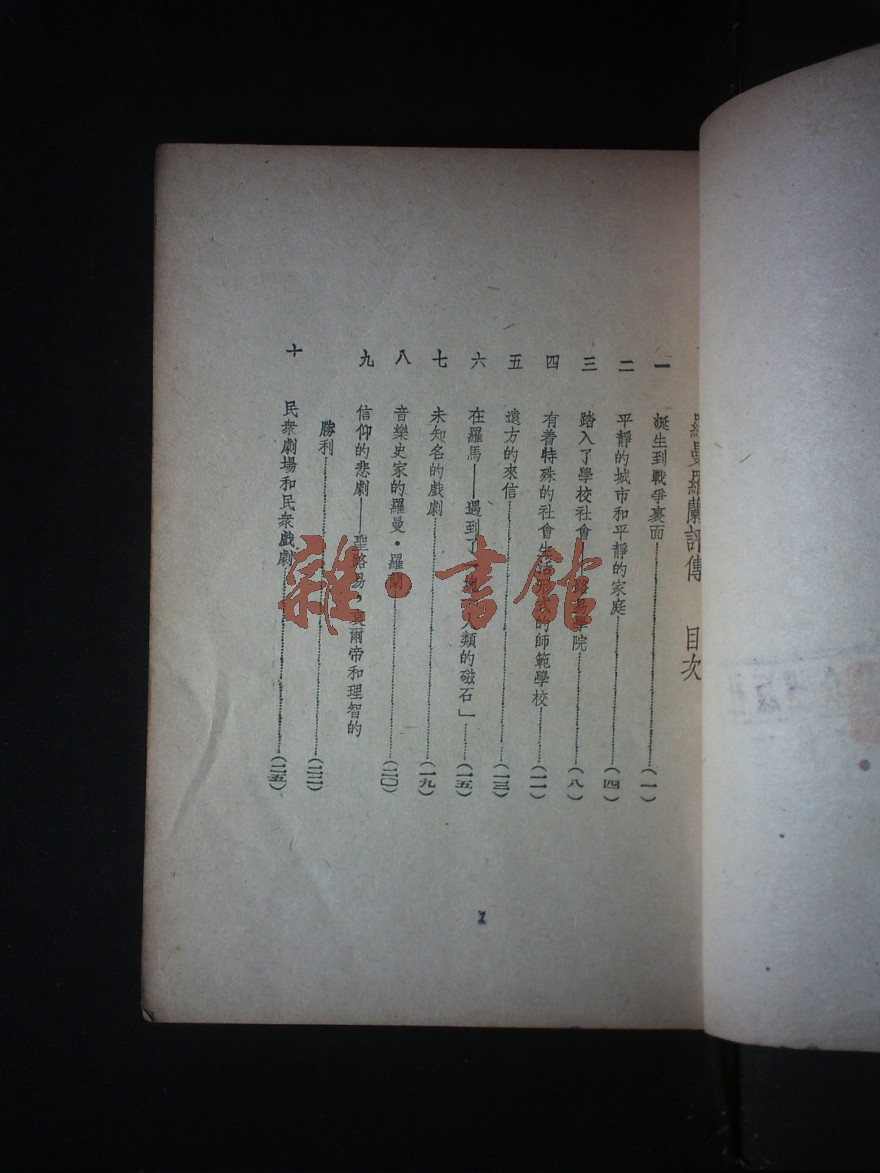 羅曼羅蘭評傳 目次
一 誕生到戰爭裏面（一）
二 平靜的城市和平靜的家庭（四）
三 踏入了學校社會 學院（八）
四 有着特殊的社會生 的師範學校（一一）
五 遠方的來信（一三）
六 在羅馬——遇到了 人類的磁石」（一五）
七 未知名的戲劇（一九）
八 音樂史家的羅曼・羅蘭（二〇）
九 信仰的悲劇——聖路易，哀爾帝和理智的
勝利（二二）
十 民衆劇場和民衆戲劇（二五）
1
雜・書館